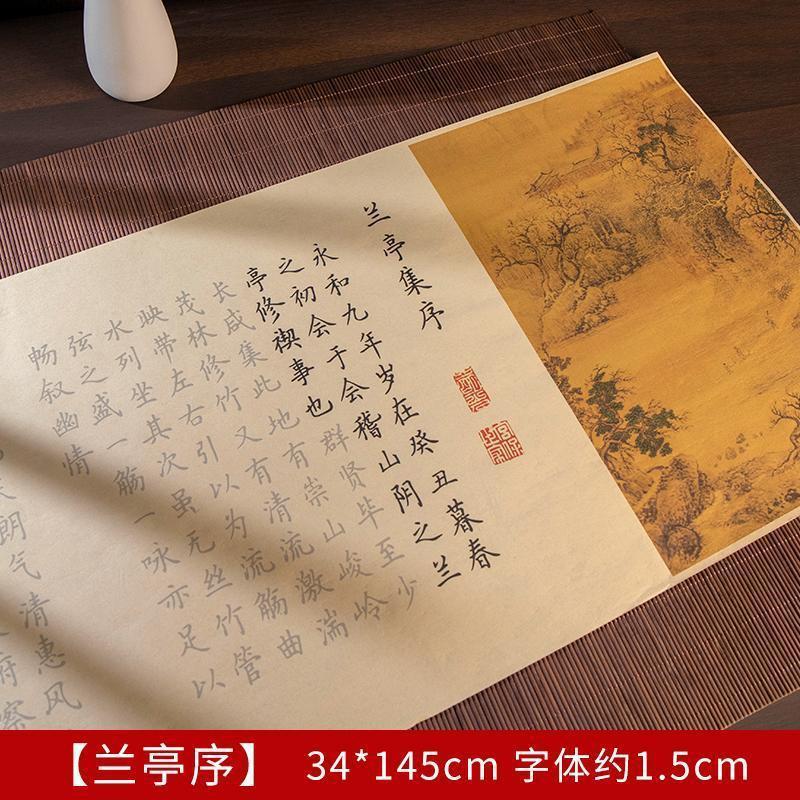 兰亭集序
永和九年岁在癸丑暮春
之初会于会稽山阴之兰
亭修禊事也群贤毕至少
长咸集此地有崇山峻岭
茂林修竹又有清流激湍
映带左右引以为流觞曲
水列坐其次虽无丝竹管
弦之盛一觞一咏亦足以
畅叙幽情
朗气清惠风
察
【兰亭序】 34*145cm 字体约1.5cm